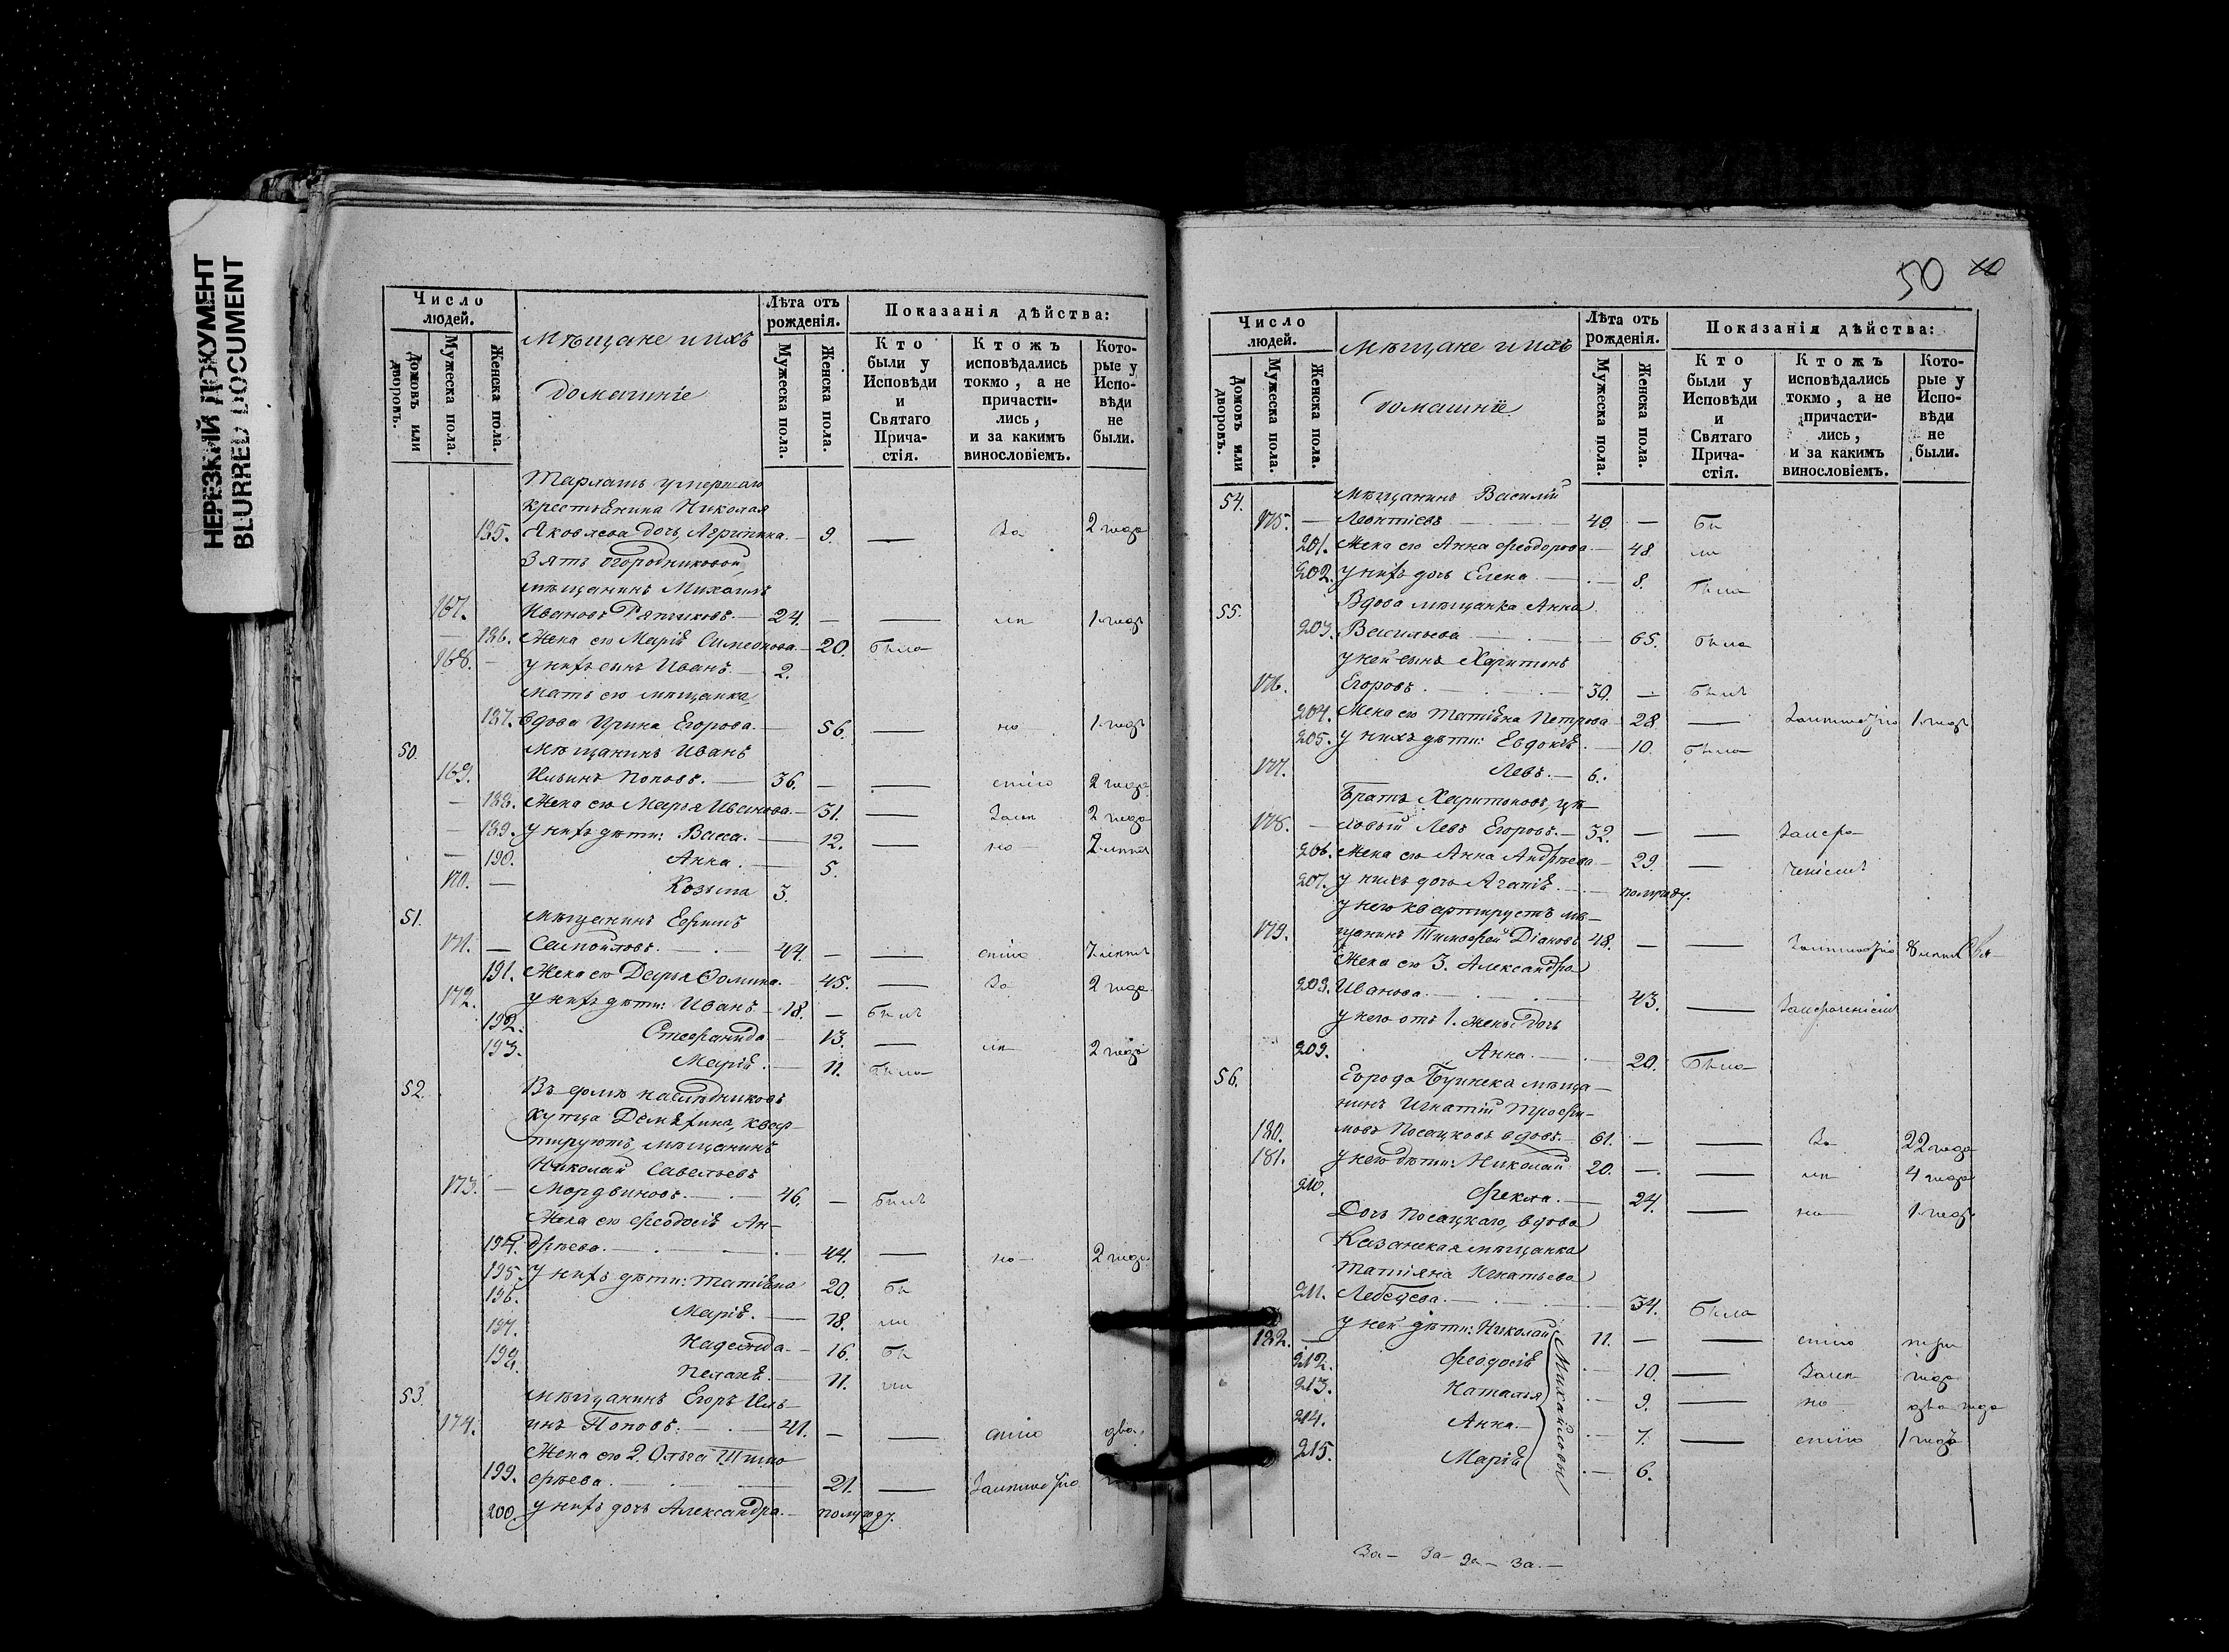 НЕРЕЗКИЙ ДОКУМЕНТ
BLURRED DOCUMENT
Число людей.
Домовъ или дворовъ.
Мужеска пола.
Женска пола.
Мѣщане и ихъ
домашніе
Лѣта отъ рожденія.
Мужеска пола.
Женска пола.
Показанія дѣйства:
Кто были у Исповѣди и Святаго Прича-стія.
Ктожъ исповѣдались токмо, а не причасти-лись, и за какимъ винословіемъ.
Кото-рые у Испо-вѣди не были.
умершаго
крестьянина Николая
185. Яковлева дочь Агрипина. — 9. — За 2 года
Зять Огородниковой,
мѣщанинъ Михаилъ
167. Ивановъ — 24. — — лѣ 1 годъ
— 186. Жена его Марія Симеонова — 20. Была
168. — у нихъ сынъ Иванъ — 2.
Мать его мѣщанка,
187. вдова Ирина Егорова. — 56. — но 1 годъ
50. Мѣщанинъ Иванъ
169. Ильинъ Поповъ. — 36. — — стію 2 года
— 188. Жена его Марья Иванова. — 31. — 2 года
— 189. у нихъ дѣти: Васса. — 12. — но 2
— 190. Анна. — 5.
170. — Козьма 3.
51. Мѣщанинъ Ефимъ
171. — Самойловъ. — 44. — — стію 7 лѣтъ
191. Жена его Дарья Ѳомина. — 45. — За 2 года
172. у нихъ дѣти: Иванъ — 18. — Былъ
192. Стефанида — 13. — лѣ 2 года
193. Марія. — 11. Была
52. Въ домѣ наслѣдниковъ
купца квар-
тируютъ, мѣщанинъ
Николай Савельевъ
173. — Мордвиновъ. — 46. — Былъ
Жена его Феодосія Ан-
194. дрѣева. — 44. — но 2 года
195. у нихъ дѣти: Татіана 20. Бы
196. Марія. — 18. ли
197. Надежда — 16. Бы
198. Пелагія — 11. ли
53. Мѣщанинъ Егоръ Иль-
174. инъ Поповъ. — 41. — — стію два
Жена его 2. Ольга Тимо
199. фѣева. — 21. —
200. у нихъ дочь Александра. — полугоду.
50
10
Число людей.
Домовъ или дворовъ.
Мужеска пола.
Женска пола.
Мѣщане и ихъ
домашніе
Лѣта отъ рожденія.
Мужеска пола.
Женска пола.
Показанія дѣйства:
Кто были у Исповѣди и Святаго Прича-стія.
Ктожъ исповѣдались токмо, а не причасти-лись, и за какимъ винословіемъ.
Кото-рые у Испо-вѣди не были.
54. Мѣщанинъ Василій
175. — Леонтіевъ — 49. — Бы
201. Жена его Анна Феодорова — 48 ли
202. у нихъ дочь Елена. — 8. Была
55. Вдова мѣщанка Анна
203. Васильева — 65. Была
у ней сынъ Харитонъ
176. Егоровъ. — 30. — Былъ
204. Жена его Татіана Петрова 28 — 1 годъ
205. у нихъ дѣти: Евдокія. — 10. Была
177. Левъ. — 6.
Братъ Харитоновъ, цѣ-
178. — ховый Левъ Егоровъ. — 32. — —
206. Жена его Анна Андрѣева — 29. —
207. у нихъ дочь Агапія. — полугоду.
у него квартируетъ мѣ-
179. щанинъ Тимофей Діаковъ 48. — — 8 лѣтъ
Жена его 3. Александра
208. Иванова. — 43. —
у него отъ 1. жены дочь
209. Анна. — 20. Была
56. Города Буинска мѣща-
нинъ Игнатій Трофи-
180. мовъ Посацковъ вдовъ. — 61. — — За 22 года
181. у него дѣти: Николай 20. — — лѣ 4 года
210. Фекла. — 24. — но 1 годъ
Дочь Посацкаго, вдова
Казанская мѣщанка
Татіяна Игнатьева
211. Лебедева. — 34. Была
182. — у ней дѣти: Николай 11. — — стію три
212. Феодосія — 10. — года
213. Наталья — 9. — но два года
214. Анна. — 7. — стію 1 годъ
215. Марія — 6.
Михайловы
За — За — За — За. —